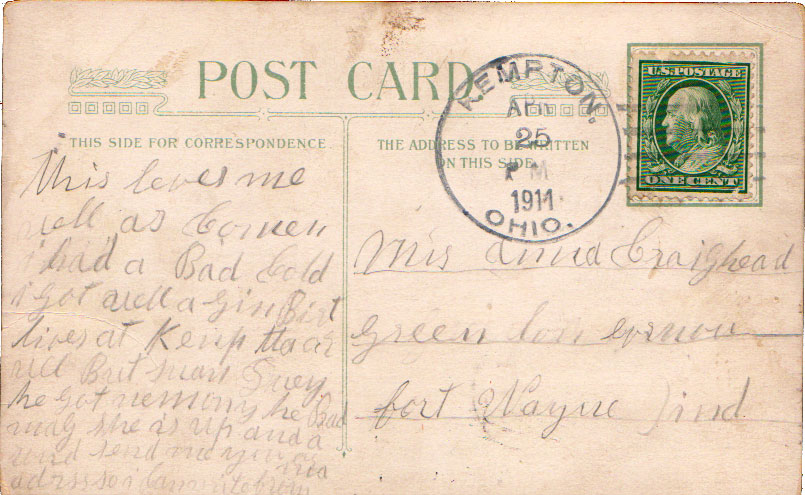 POST CARD
THIS SIDE FOR CORRESPONDENCE
THE ADDRESS TO BE WRITTEN
ON THIS SIDE
KEMPTON,
APR
25
PM
1911
OHIO.
U.S. POSTAGE
ONE CENT
This leves me
well as Comen
i had a Bad Cold
i got well a gin Birt
lives at Kemp
well But man
he got nemony he Bad
she is up and a
send me you
Mis Anna Craighead
Green
fort Wayne ind